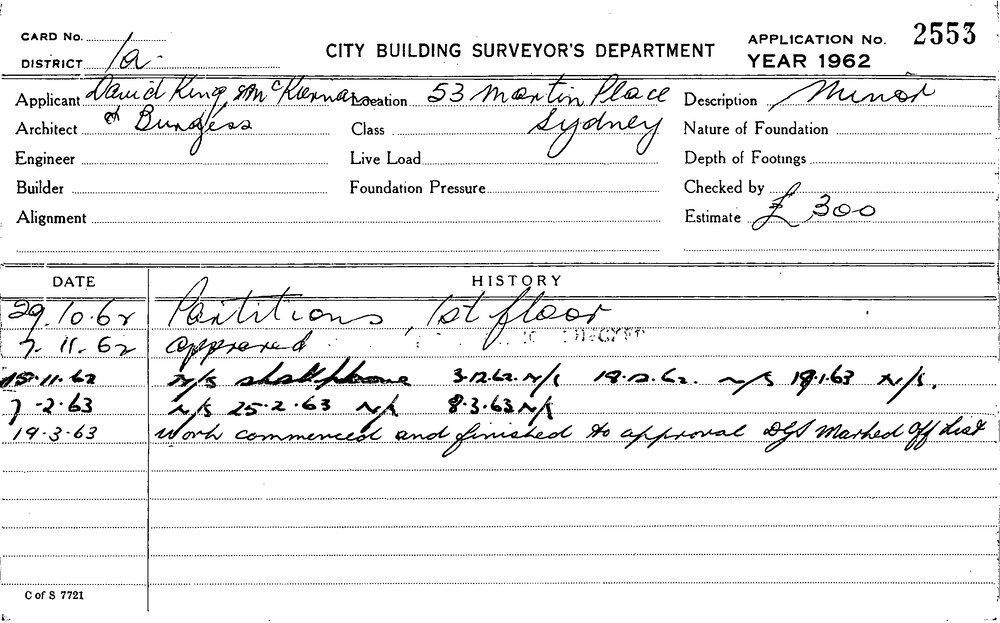 CARD No.
CITY BUILDING SURVEYOR'S DEPARTMENT
APPLICATION No. 2553
DISTRICT 1a.
YEAR 1962
Applicant David King, & McKiernan Location 53 Martin Place Description Minor
Architect & Burgess Class Sydney Nature of Foundation
Engineer Live Load Depth of Footings
Builder Foundation Pressure Checked by
Alignment Estimate £ 300
DATE HISTORY
29.10.62 Partitions, 1st floor
7.11.62 approved
15.11.62 N/S shall phone 3.12.62. N/S 18.12.62. N/S 18.1.63 N/S.
7-2.63 N/S 25.2.63 N/S 8.3.63 N/S
19.3.63 Work commenced and finished to approval DGS Marked Off List
C of S 7721